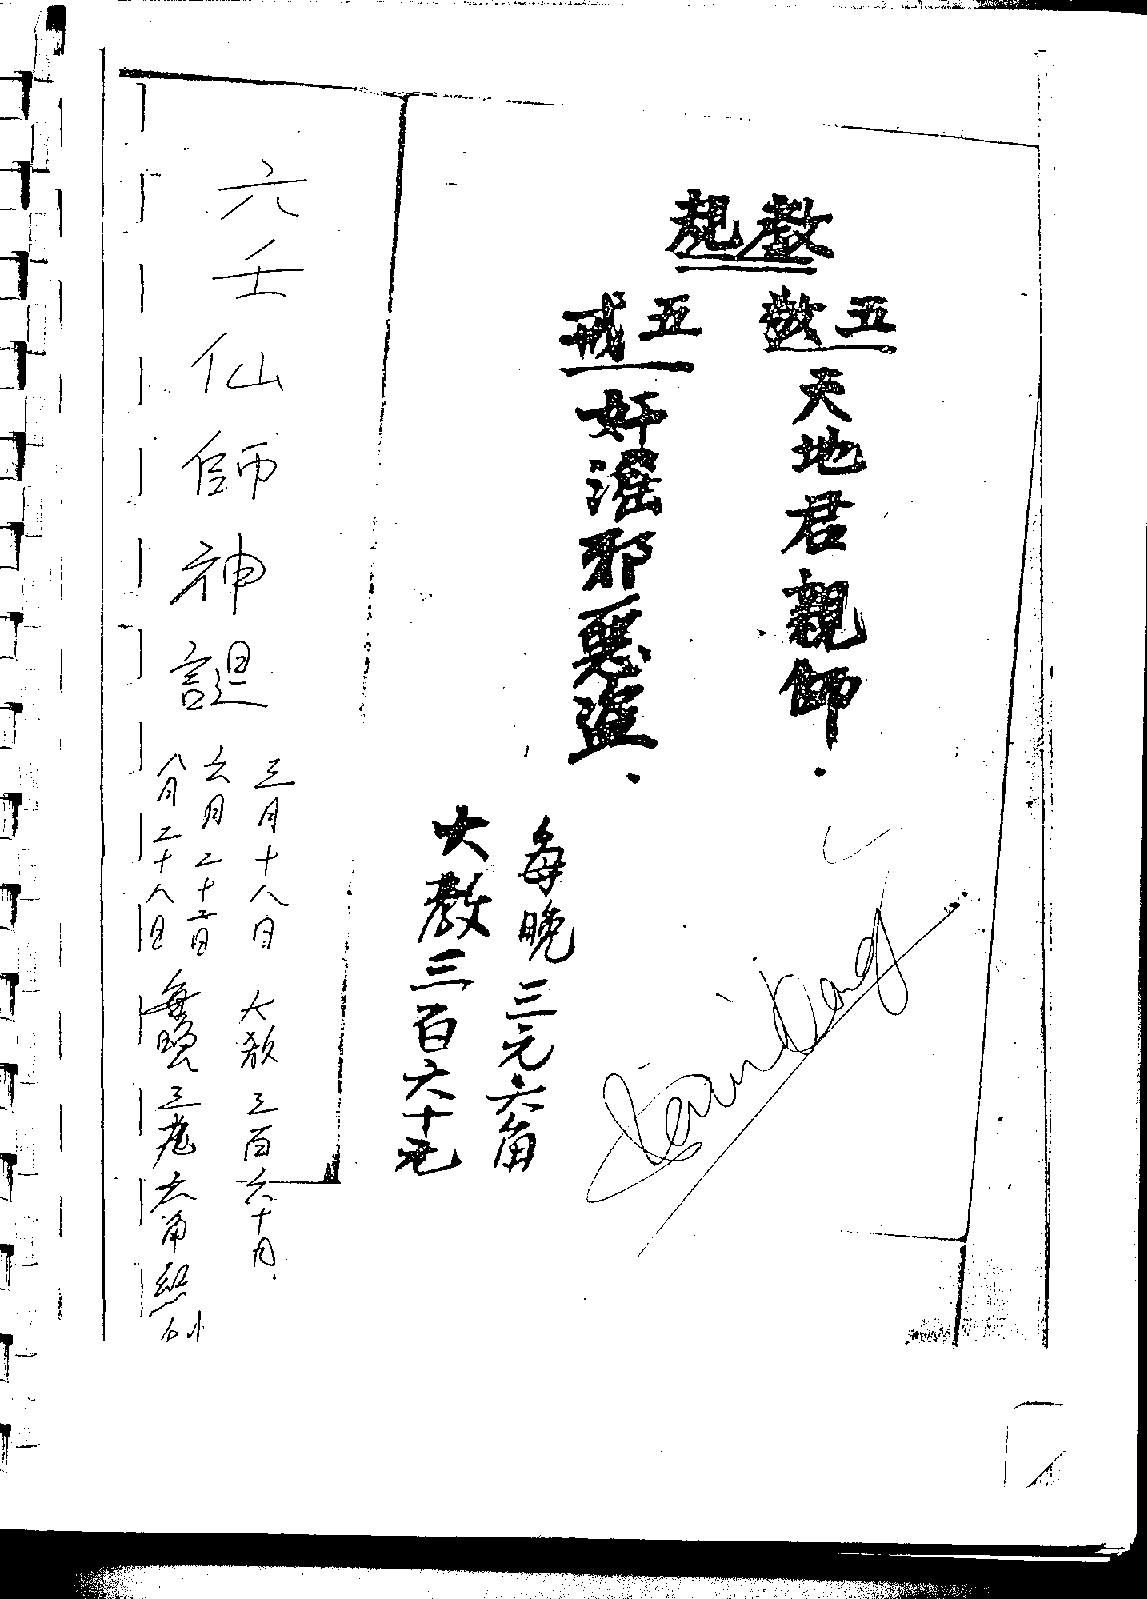 教規
五敬
天地君親師.
五戒
奸淫邪惡盜.
每晚三元六角
大教三百六十元
六壬仙師神誕
三月十八日
六月二十六日
八月二十八日
大教三百六十
每晚三元六角